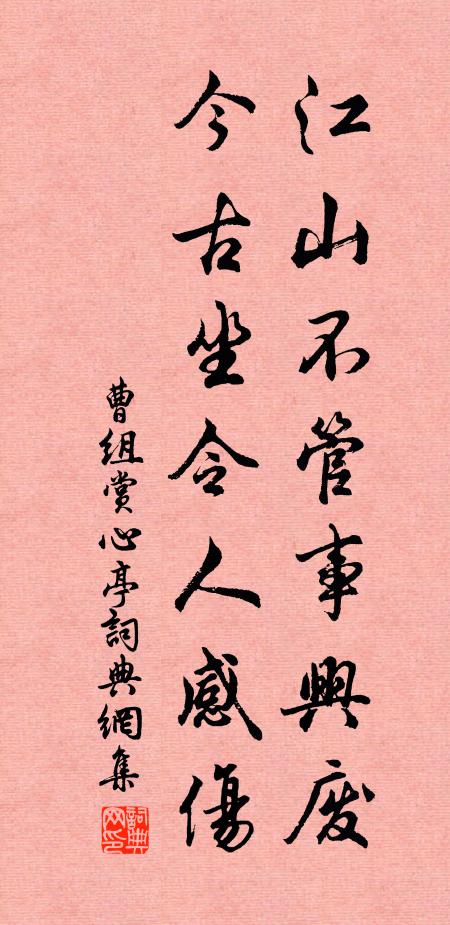 江山不管事興廢
今古坐令人感傷
曹組賞心亭詞典網集
詞典网印